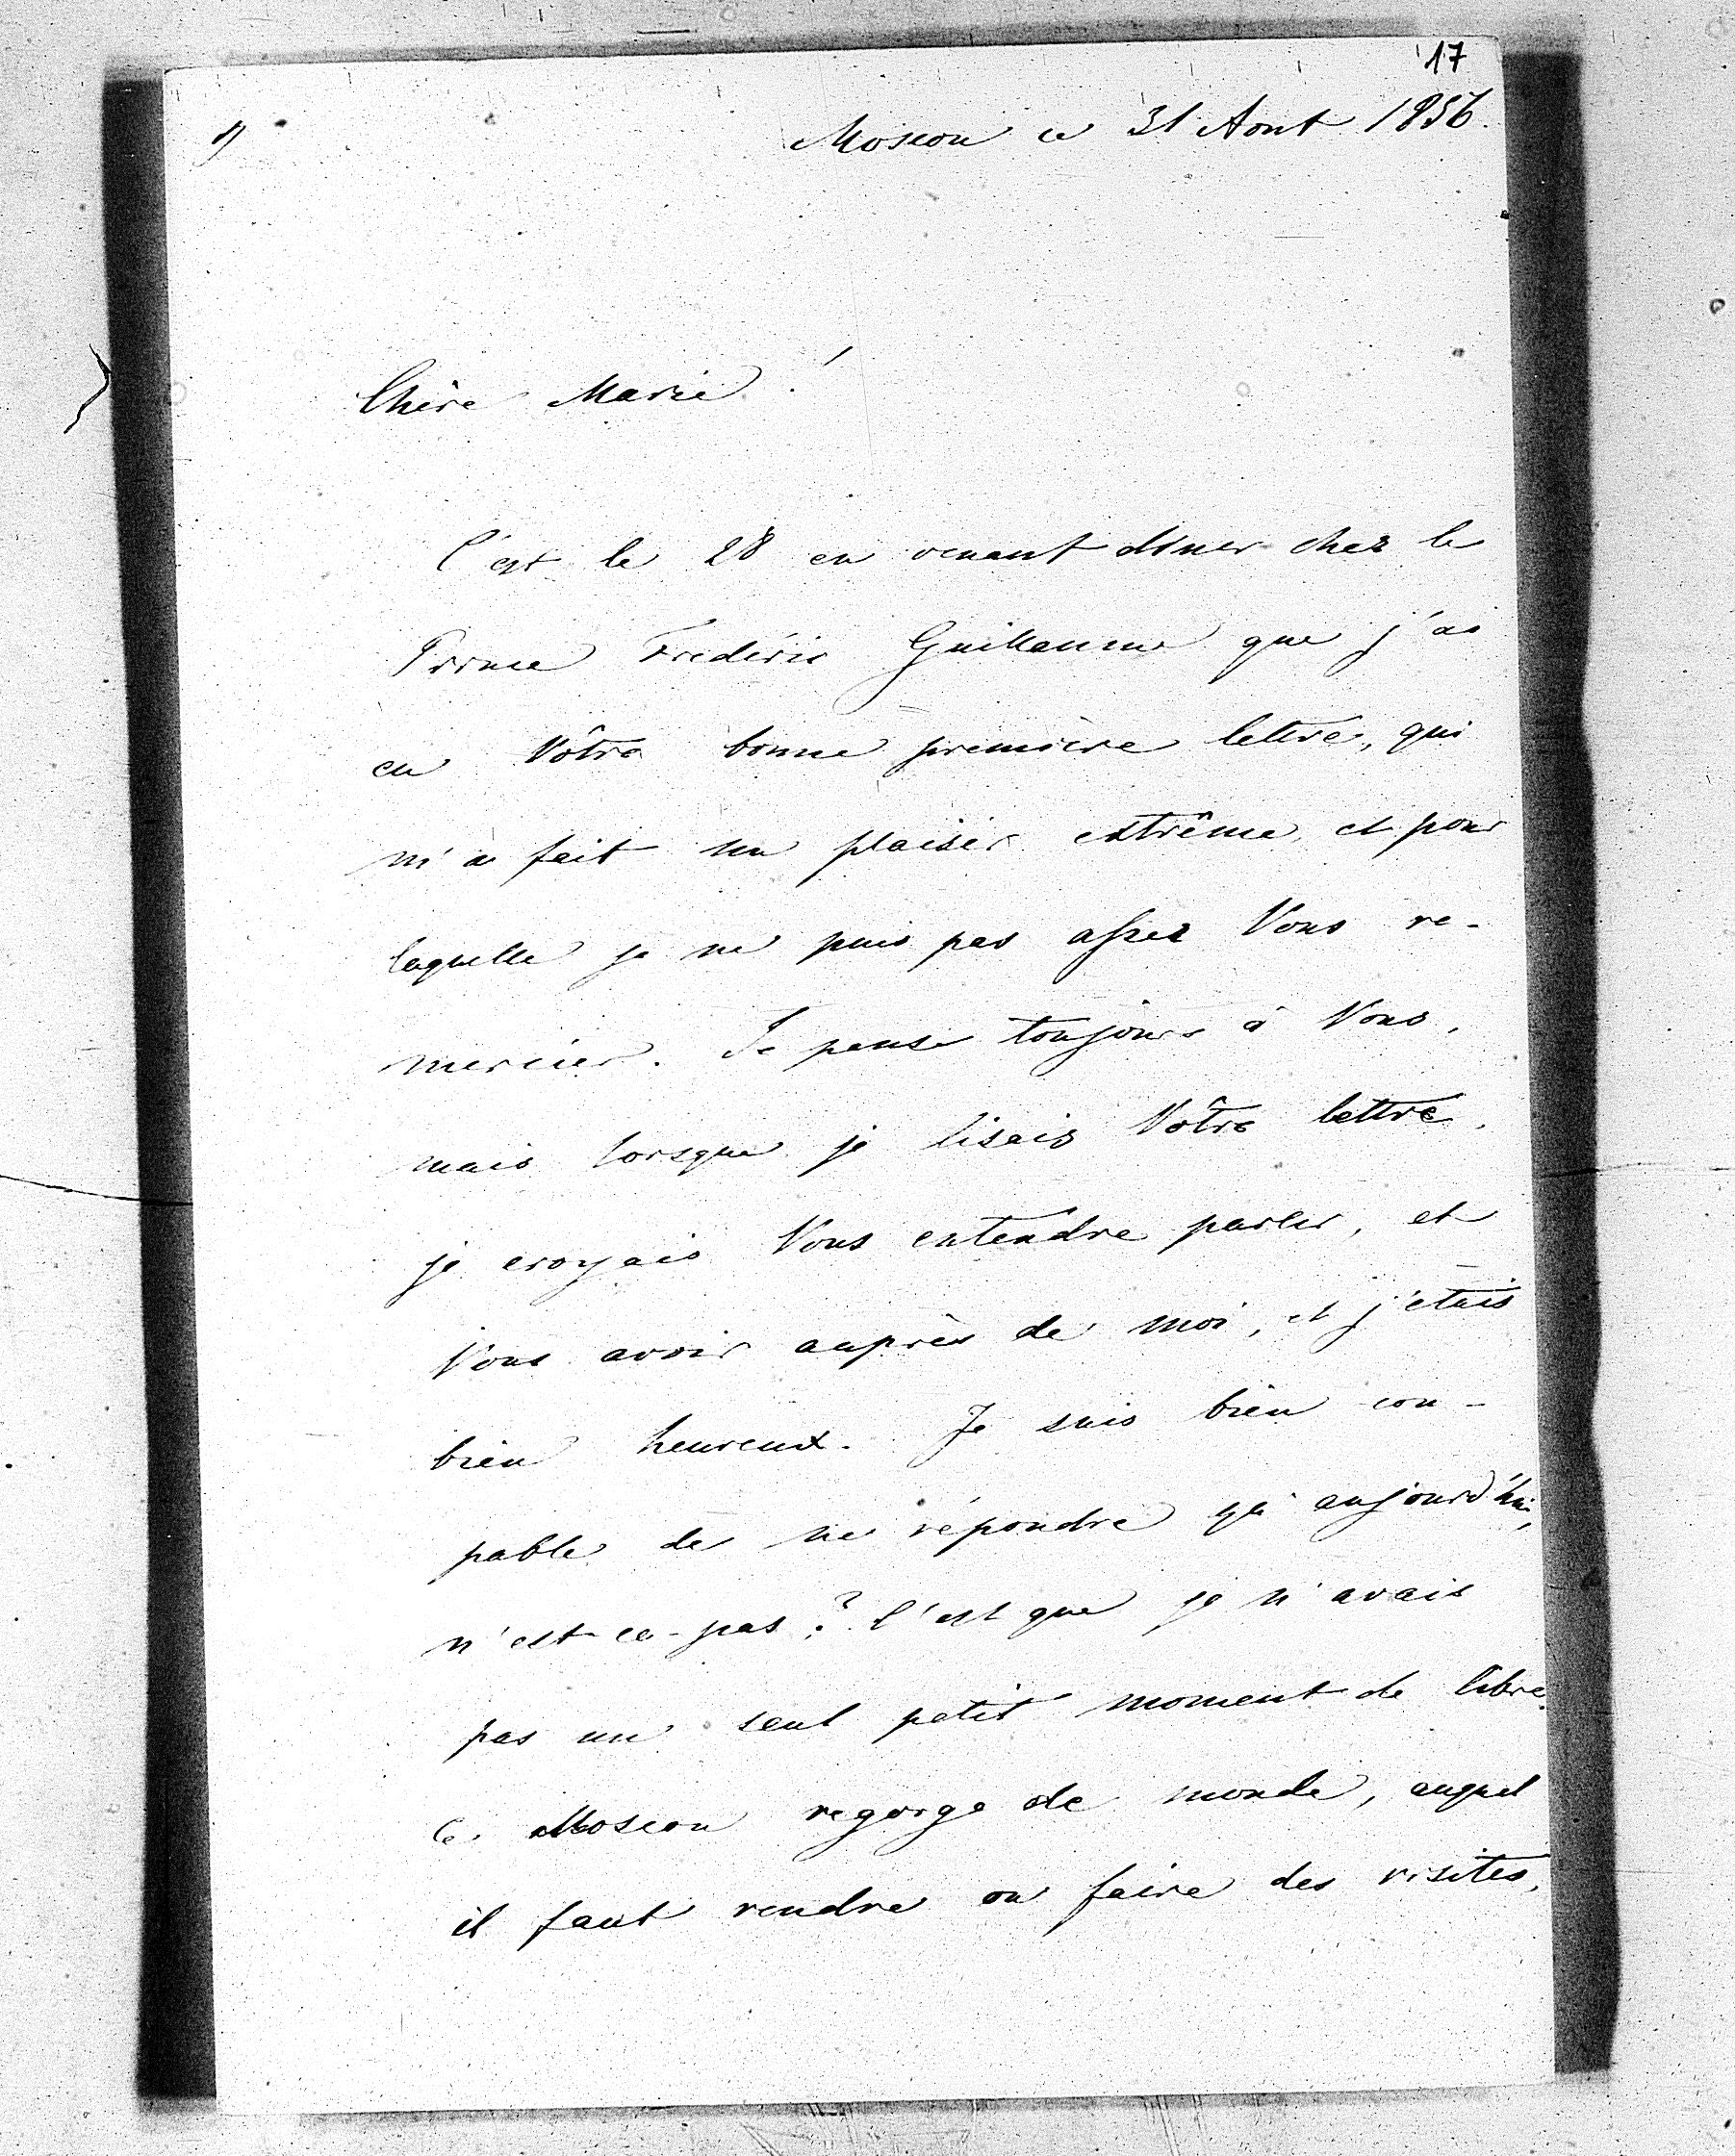 17
Moscou ce 31 Aout 1856.
Chère Marie!
C'est le 28 en venant diner chez le
Prince Frédéric Guillaume que j'ai
eu Vôtre bonne première lettre, qui
m'a fait un plaisir extrême, et pour
laquelle je ne puis pas assez Vous re-
mercier. Je pense toujours à Vous,
mais lorsque je lisais Vôtre lettre,
je croyais Vous entendre parler, et
Vous avoir auprès de moi, et j'étais
bien heureux. Je suis bien cou-
pable de ne répondre qu'aujourd'hui,
n'est-ce-pas? C'est que je n'avais
pas un seul petit moment de libre.
Moscou regorge de monde, auquel
il faut rendre ou faire des visites,